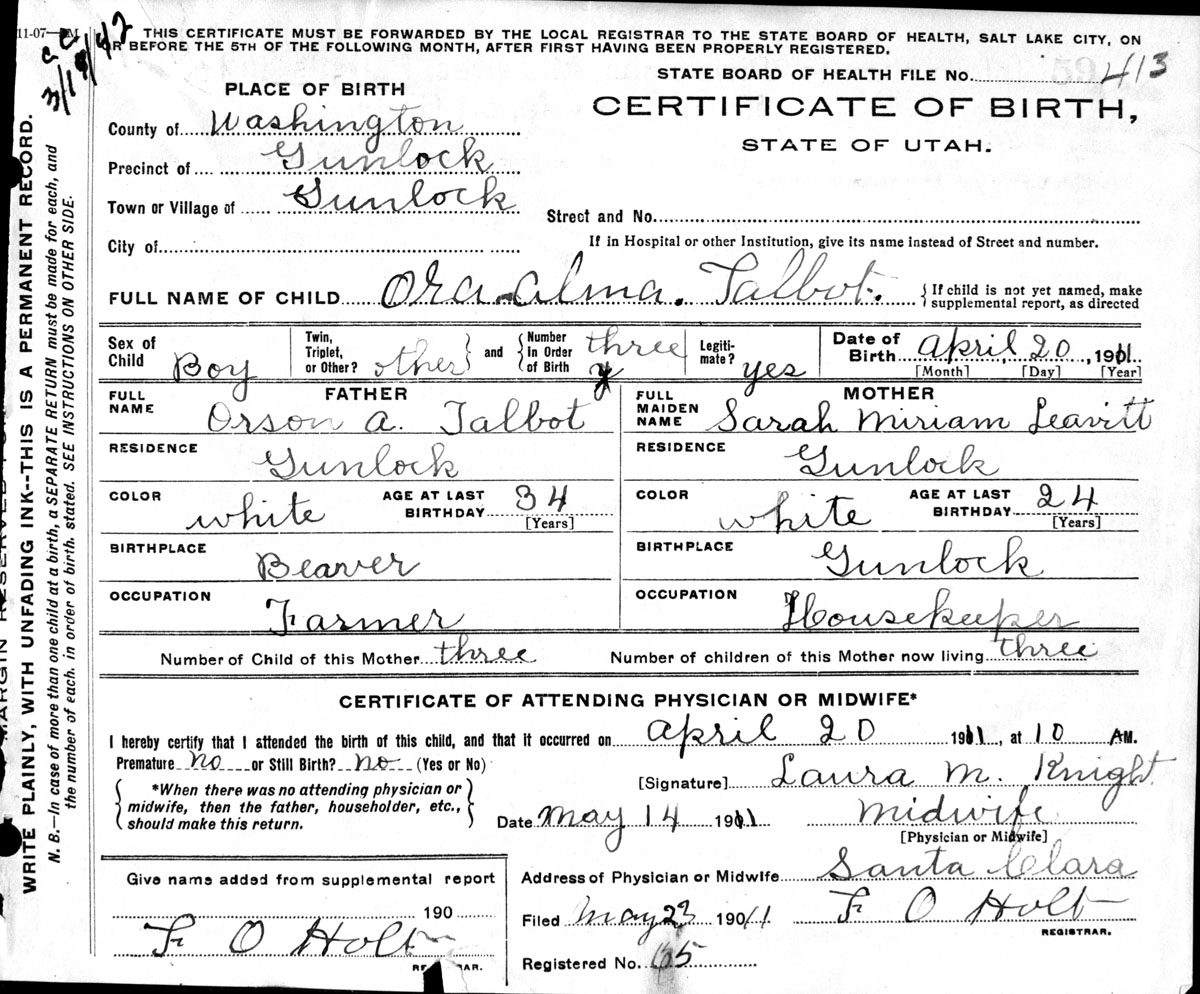 11-07—
C C
3/18/42
THIS CERTIFICATE MUST BE FORWARDED BY THE LOCAL REGISTRAR TO THE STATE BOARD OF HEALTH, SALT LAKE CITY, ON
OR BEFORE THE 5TH OF THE FOLLOWING MONTH, AFTER FIRST HAVING BEEN PROPERLY REGISTERED.
STATE BOARD OF HEALTH FILE No. 413
PLACE OF BIRTH
CERTIFICATE OF BIRTH,
STATE OF UTAH.
County of Washington
Precinct of Gunlock
Town or Village of Gunlock
Street and No.
City of
If in Hospital or other Institution, give its name instead of Street and number.
FULL NAME OF CHILD Ora Alma. Talbot. { If child is not yet named, make
supplemental report, as directed
Sex of Child Boy
Twin, Triplet, or Other? other } and { Number in Order of Birth three
Legiti-mate? yes
Date of Birth April 20, 1911
[Month] [Day] [Year]
FATHER
FULL NAME Orson A. Talbot
MOTHER
FULL MAIDEN NAME Sarah Miriam Leavitt
RESIDENCE Gunlock
RESIDENCE Gunlock
COLOR white AGE AT LAST BIRTHDAY 34 [Years]
COLOR white AGE AT LAST BIRTHDAY 24 [Years]
BIRTHPLACE Beaver
BIRTHPLACE Gunlock
OCCUPATION Farmer
OCCUPATION Housekeeper
Number of Child of this Mother three Number of children of this Mother now living three
CERTIFICATE OF ATTENDING PHYSICIAN OR MIDWIFE*
I hereby certify that I attended the birth of this child, and that it occurred on April 20 1911, at 10 AM.
Premature No or Still Birth? No (Yes or No)
[Signature] Laura M. Knight
{ *When there was no attending physician or
midwife, then the father, householder, etc.,
should make this return. }
Date May 14 1911 Midwife
[Physician or Midwife]
Address of Physician or Midwife Santa Clara
Give name added from supplemental report
190
F O Holt
REGISTRAR.
Filed May 23 1911 F O Holt
REGISTRAR.
Registered No. 65
MARGIN RESERVED FOR
WRITE PLAINLY, WITH UNFADING INK--THIS IS A PERMANENT RECORD.
N. B.—In case of more than one child at a birth, a SEPARATE RETURN must be made for each, and
the number of each, in order of birth, stated. SEE INSTRUCTIONS ON OTHER SIDE.